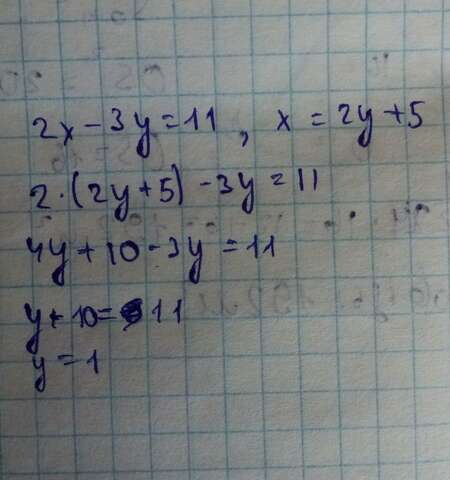 2x - 3y = 11 , x = 2y + 5
2·(2y + 5) - 3y = 11
4y + 10 - 3y = 11
y + 10 = 11
y = 1